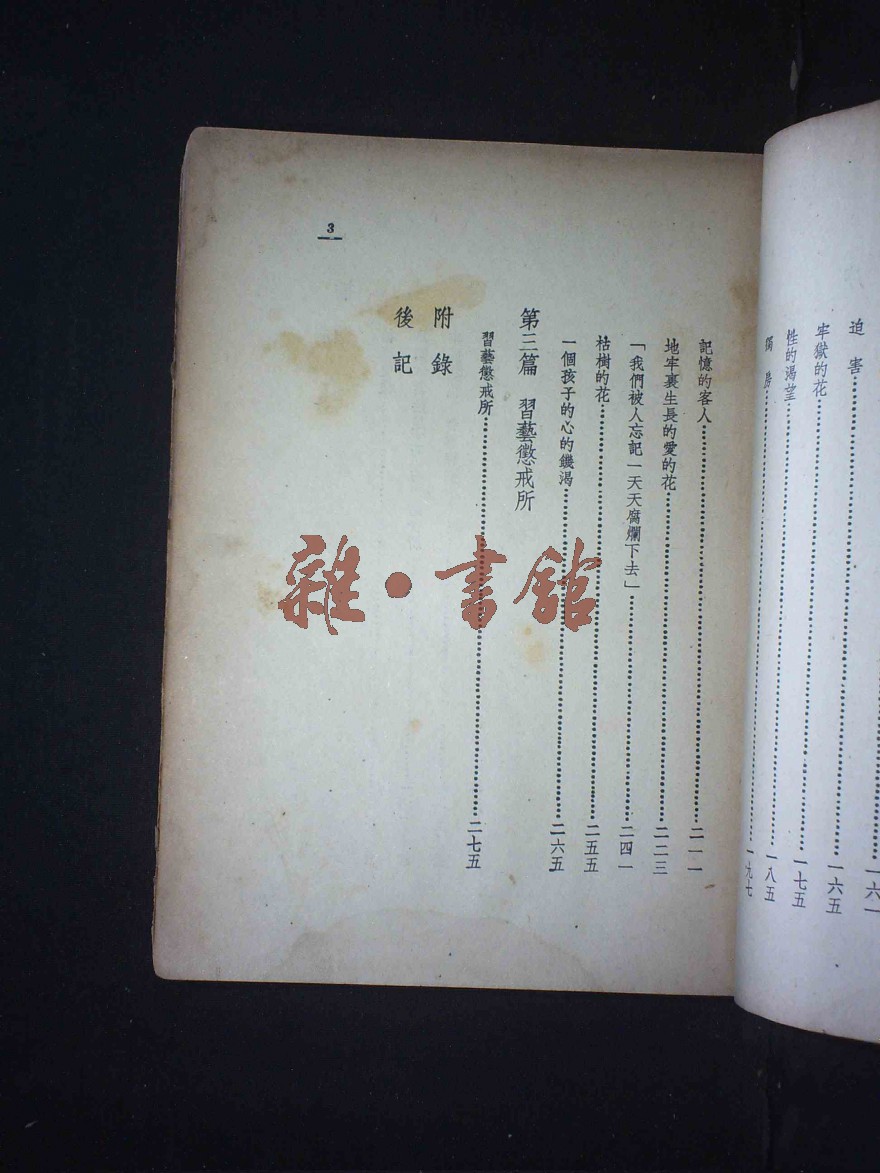 迫害……一六一
牢獄的花……一六五
性的渴望……一七五
一八五
一九七
3
記憶的客人……二一一
地牢裏生長的愛的花……二二三
「我們被人忘記一天天腐爛下去」……二四一
枯樹的花……二五五
一個孩子的心的饑渴……二六五
第三篇 習藝懲戒所
習藝懲戒所……二七五
附錄
後記
雜·書館